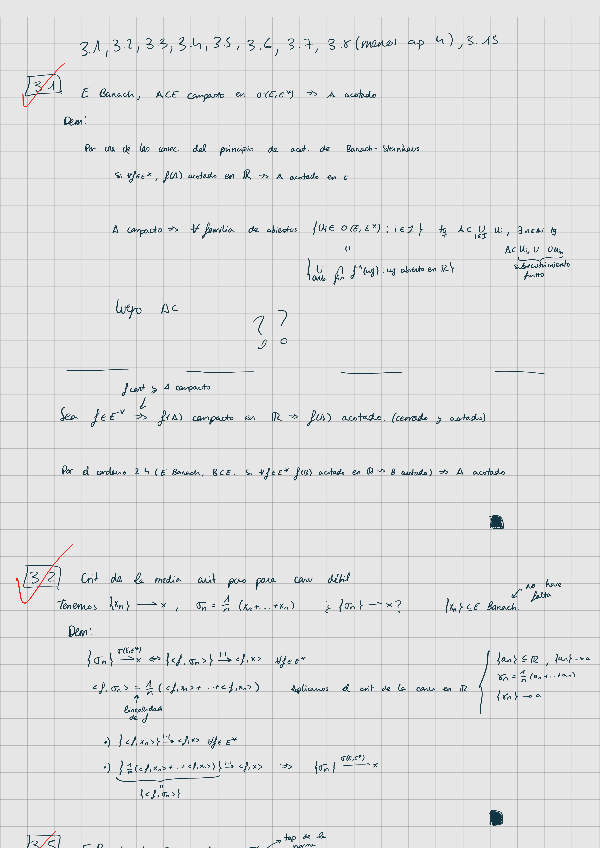 3.1, 3.2, 3.3, 3.4, 3.5, 3.6, 3.7, 3.8 (menos ap 4), 3.13
3.1 E Banach, A⊂E compacto en σ(E,E*) ⇒ A acotado
Dem:
Por una de las consec. del principio de acot. de Banach-Steinhaus
Si ∀f∈E*, f(A) acotado en ℝ ⇒ A acotado en E
A compacto ⇒ ∀ familia de abiertos {Ui ∈ σ(E,E*) : i∈I} tq A⊂ ∪ Ui, ∃
i∈I
subrecubrimiento
finito
Luego A⊂
? ?
f cont y A compacto
Sea f∈E* ⇒ f(A) compacto en ℝ ⇒ f(A) acotado. (cerrado y acotado)
Por el corolario 2.4 (E Banach, B⊂E. Si ∀f∈E* f(B) acotado en ℝ ⇒ B acotado) ⇒ A acotado
3.2 Crit de la media arit para conv débil
no hace
falta
Tenemos {xn} ⇀ x, σn = 1/n (x1+...+xn) ¿ {σn} ⇀ x? {xn}⊂E Banach.
Dem:
{σn} σ(E,E*)→ x ⇔ {<f,σn>} → <f,x> ∀f∈E*
<f,σn> = 1/n (<f,x1> + ... + <f,xn>) Aplicamos el crit de la conv en ℝ
{an} ⊆ ℝ, {an} → a
σn = 1/n (a1+...+an)
{σn} → a
linealidad
de f
•) {<f,xn>} → <f,x> ∀f∈E*
•) {1/n (<f,x1> + ... + <f,xn>)} → <f,x> ⇒ {σn} σ(E,E*)→ x
"
{<f,σn>}
top de la
norma